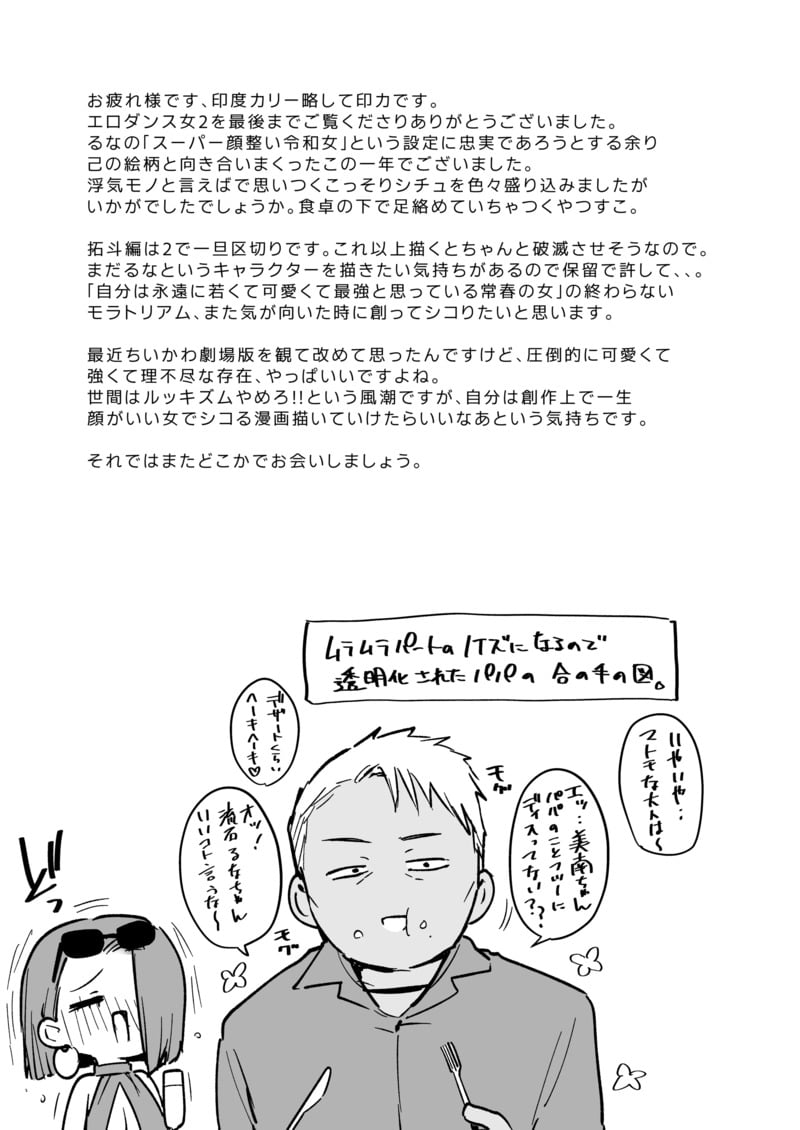 お疲れ様です、印度カリー略して印力です。
エロダンス女2を最後までご覧くださりありがとうございました。
るなの「スーパー顔整い令和女」という設定に忠実であろうとする余り
己の絵柄と向き合いまくったこの一年でございました。
浮気モノと言えばで思いつくこっそりシチュを色々盛り込みましたが
いかがでしたでしょうか。食卓の下で足絡めていちゃつくやつすこ。
拓斗編は2で一旦区切りです。これ以上描くとちゃんと破滅させそうなので。
まだるなというキャラクターを描きたい気持ちがあるので保留で許して、、。
「自分は永遠に若くて可愛くて最強と思っている常春の女」の終わらない
モラトリアム、また気が向いた時に創ってシコりたいと思います。
最近ちいかわ劇場版を観て改めて思ったんですけど、圧倒的に可愛くて
強くて理不尽な存在、やっぱいいですよね。
世間はルッキズムやめろ!!という風潮ですが、自分は創作上で一生
顔がいい女でシコる漫画描いていけたらいいなあという気持ちです。
それではまたどこかでお会いしましょう。
ムラムラパートのノイズになるので
透明化されたパパの 合の手の図。
いやいや‥
マトモな大人は〜
エッ…美南ちゃん
パパのことフツーに
ディスってない?？
モグ
デザートくらい
ヘーキヘーキ♡
オッ!
流石るなちゃん
いいコト言うな〜
モグ
どっ